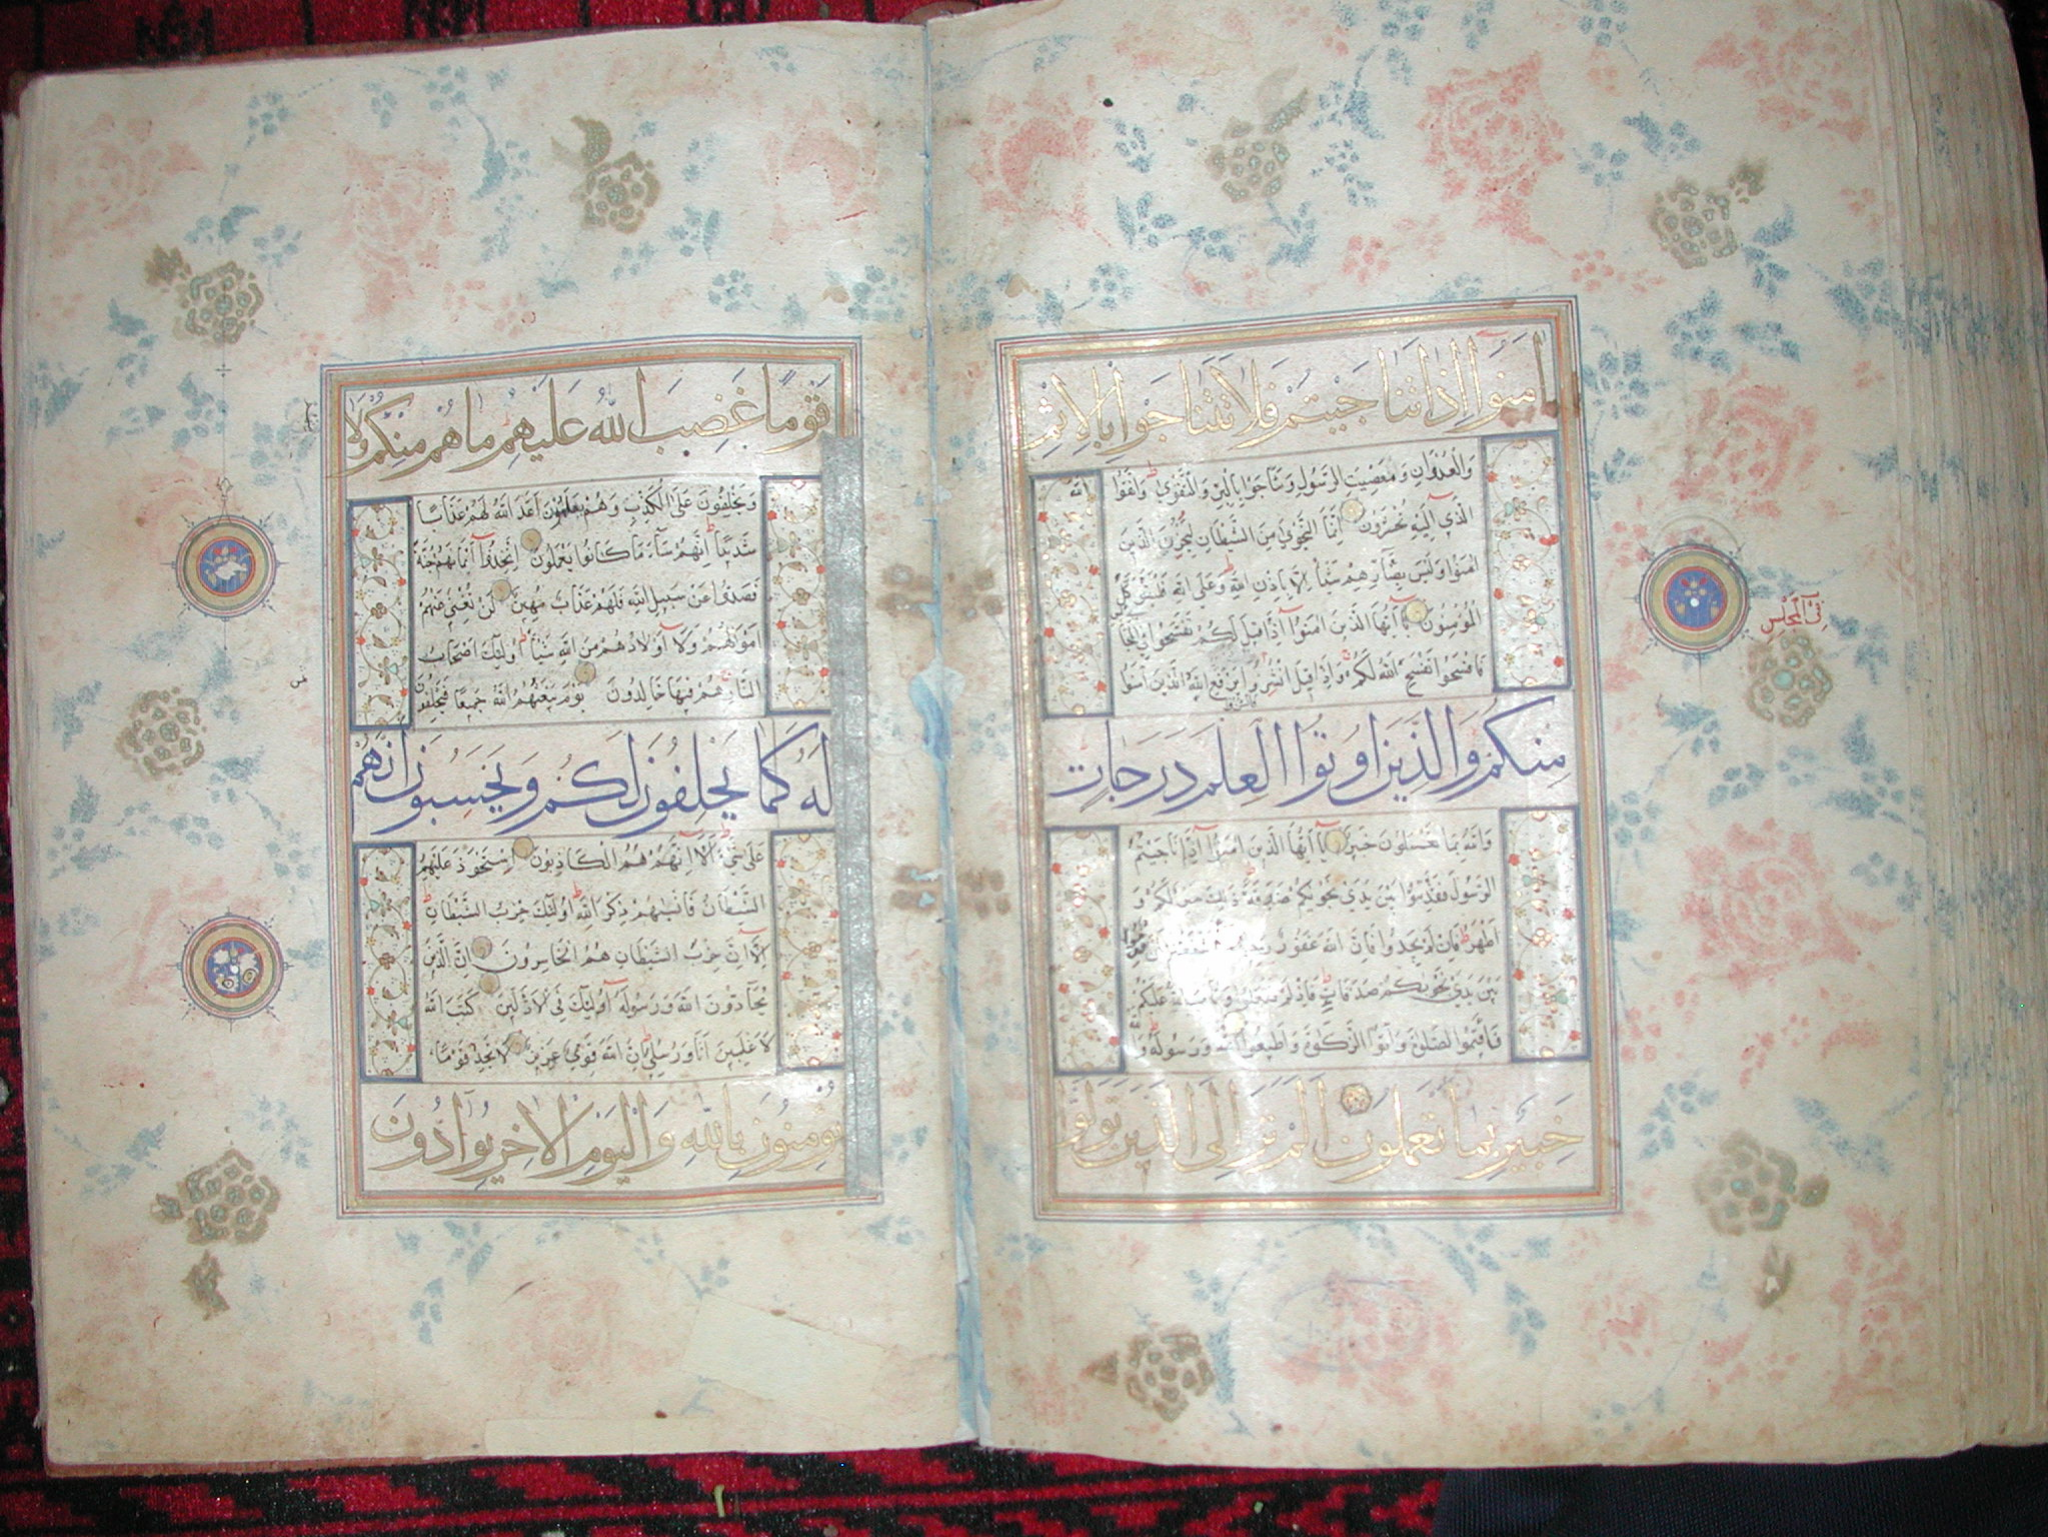 امنوا اذا تناجيتم فلا تتناجوا بالاثم
والعدوان ومعصيت الرسول وتناجوا بالبر والتقوى واتقوا الله
الذي اليه تحشرون انما النجوي من الشيطان ليحزن الذين
امنوا وليس بضارهم شيئا الا باذن الله وعلى الله فليتوكل
المؤمنون يا ايها الذين امنوا اذا قيل لكم تفسحوا في المجا
فافسحوا يفسح الله لكم واذا قيل انشزوا يرفع الله الذين امنوا
منكم والذين اوتوا العلم درجات
والله بما تعملون خبير يا ايها الذين امنوا اذا ناجيتم
الرسول فقدموا بين يدي نجويكم صدقة ذلك خير لكم و
اطهر فان لم تجدوا فان الله غفور
بين يدي نجويكم صدقات فاذ لم تفعلوا وتاب الله عليكم
فاقيموا الصلوة واتوا الزكوة واطيعوا الله ورسوله والله
خبير بما تعملون الم تر الى الذين تولوا
في المجلس
قوما غضب الله عليهم ما هم منكم ولا
ويحلفون على الكذب وهم يعلمون اعد الله لهم عذابا
شديدا انهم ساء ما كانوا يعملون اتخذوا ايمانهم جنة
فصدوا عن سبيل الله فلهم عذاب مهين لن تغني عنهم
اموالهم ولا اولادهم من الله شيئا اولئك اصحاب
النار هم فيها خالدون يوم يبعثهم الله جميعا فيحلفون
له كما يحلفون لكم ويحسبون انهم
على شئ الا انهم هم الكاذبون استحوذ عليهم
الشيطان فانسيهم ذكر الله اولئك حزب الشيطان
الا ان حزب الشيطان هم الخاسرون ان الذين
يحادون الله ورسوله اولئك في الاذلين كتب الله
لاغلبن انا ورسلي ان الله قوي عزيز لا تجد قوما
يومنون بالله واليوم الاخر يوادون